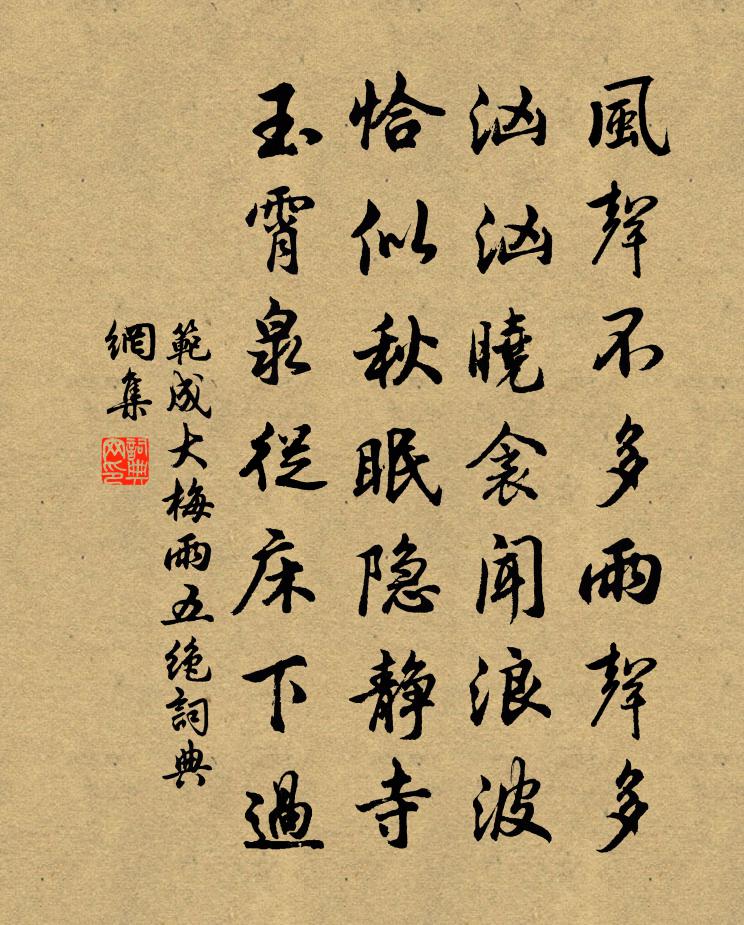 風聲不多雨聲多
汹汹曉衾聞浪波
恰似秋眠隐静寺
玉霄泉從床下過
範成大梅雨五绝詞典
網集
詞典
网印